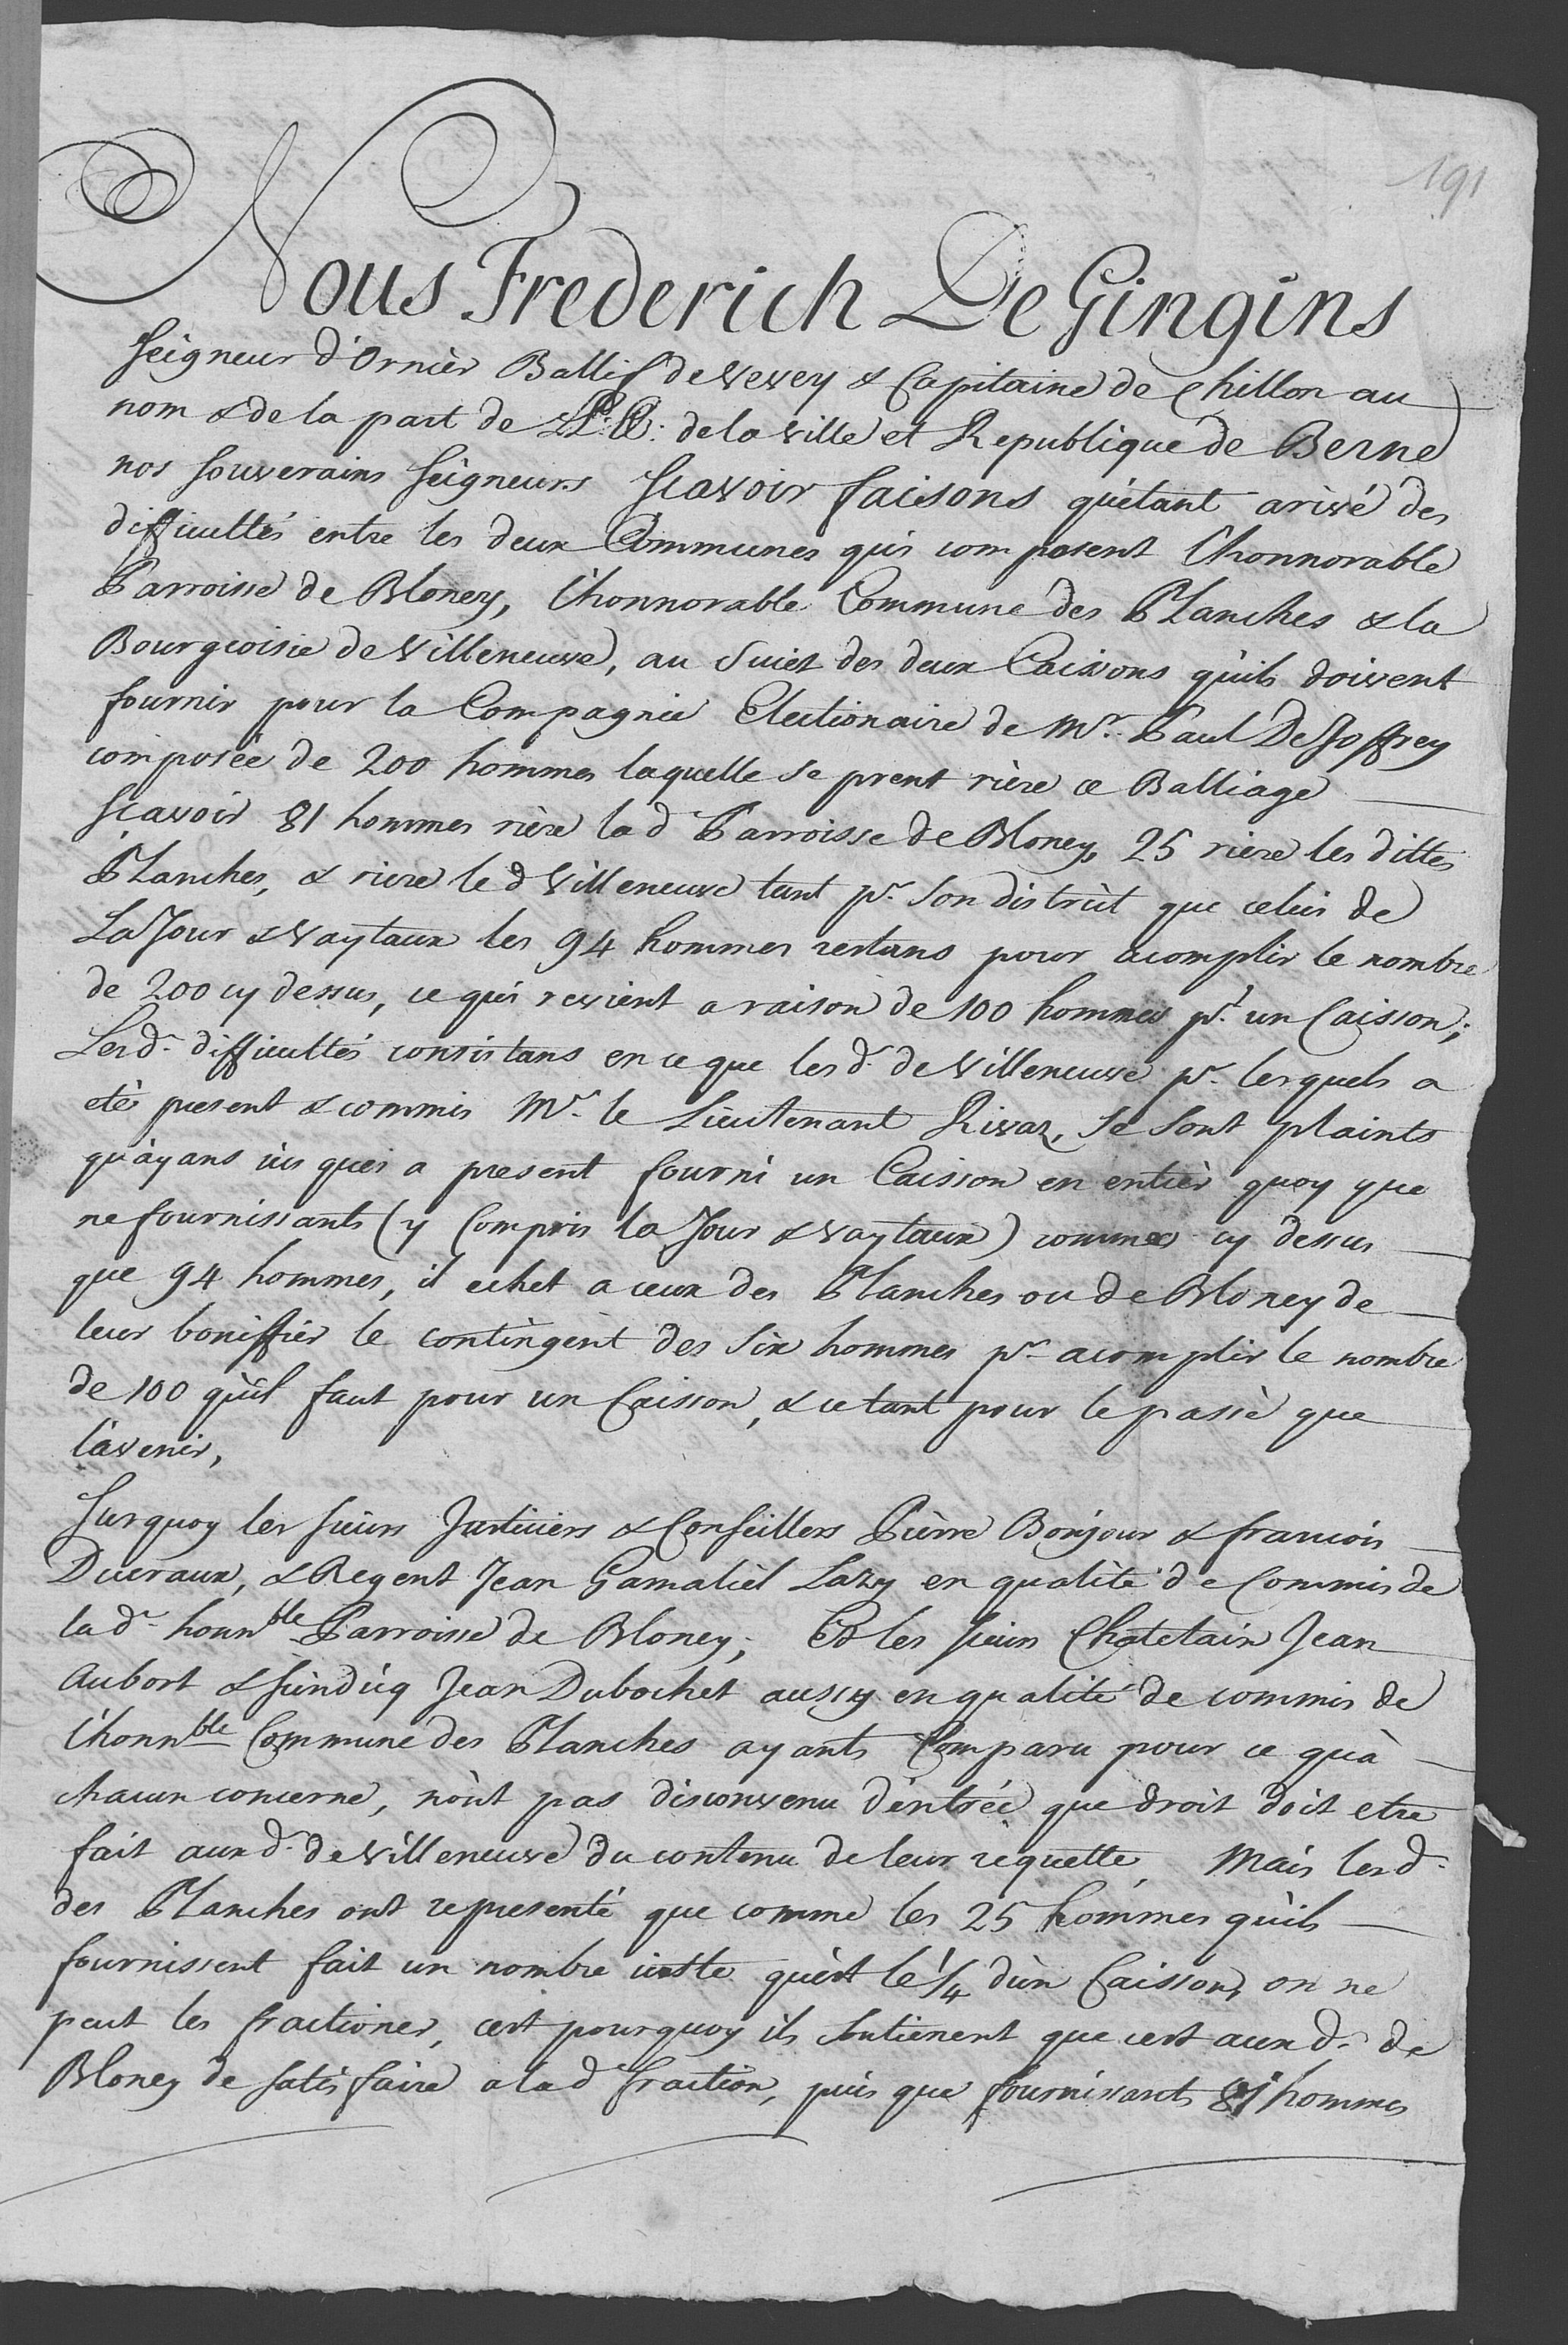 191
Nous Frederich De Gingins
Seigneur d'Ornier Ballif de Vevey & Capitaine de Chillon au
nom & de la part de LL. EE: de la Ville et Republique de Berne
nos Souverains Seigneurs Scavoir faisons qu'etant arivé des
difficultés entre les deux Communes qui composent l'honnorable
Parroisse de Bloney, l'honnorable Commune des Planches & la
Bourgeoisie de Villeneuve, au Suiet des deux Caissons quils doivent
fournir pour la Compagnie Electionaire de Mr. Paul DeJoffrey
composée de 200 hommes laquelle se prent rière ce Balliage
Scavoir 81 hommes rière lad. Parroisse de Bloney, 25 rière les dittes
Planches, & riere led. Villeneuve tant pr. Son district que celui de
La Tour & Vaytaux les 94 hommes restans pour acomplir le nombre
de 200 cy dessus, ce qui revient a raison de 100 hommes pr. un Caisson;
Lesd. difficultés consistans en ce que lesd. de Villeneuve pr. lesquels a
eté present & commis Mr. le Lieutenant Rivaz, se sont plaints
qu'ayans iusques a present fourni un Caisson en entier quoy que
ne fournissants (y Compris la Tour & Vaytaux) comme cy dessus
que 94 hommes, il echet a ceux des Planches ou de Bloney de
leur boniffier le contingent des Six hommes pr. acomplir le nombre
de 100 qu'il faut pour un Caisson, & ce tant pour le passé que
l'avenir,
Surquoy les Sieurs Justiciers & Conseillers Pierre Bonjour & francois
Ducraux, & Regent Jean Gamaliel Lazy en qualité de Commis de
lad. honnble Parroisse de Bloney; Et les Sieurs Chatelain Jean
Aubort & Sindicq Jean Dubochet aussy en qualité de commis de
l'honnble Commune des Planches ayants Comparu pour ce qu'à
chacun concerne, n'ont pas disconvenu d'entrée que droit doit etre
fait auxd. de Villeneuve du contenu de leur requette, Mais lesd.
des Planches ont representé que comme les 25 hommes quils
fournissent fait un nombre iuste qu'est le 1/4 d'un Caisson, on ne
peut les fractioner, cest pourquoy ils Soutienent que cest auxd. de
Bloney de satisfaire a lad. fraction, puis que fournissants 81 hommes